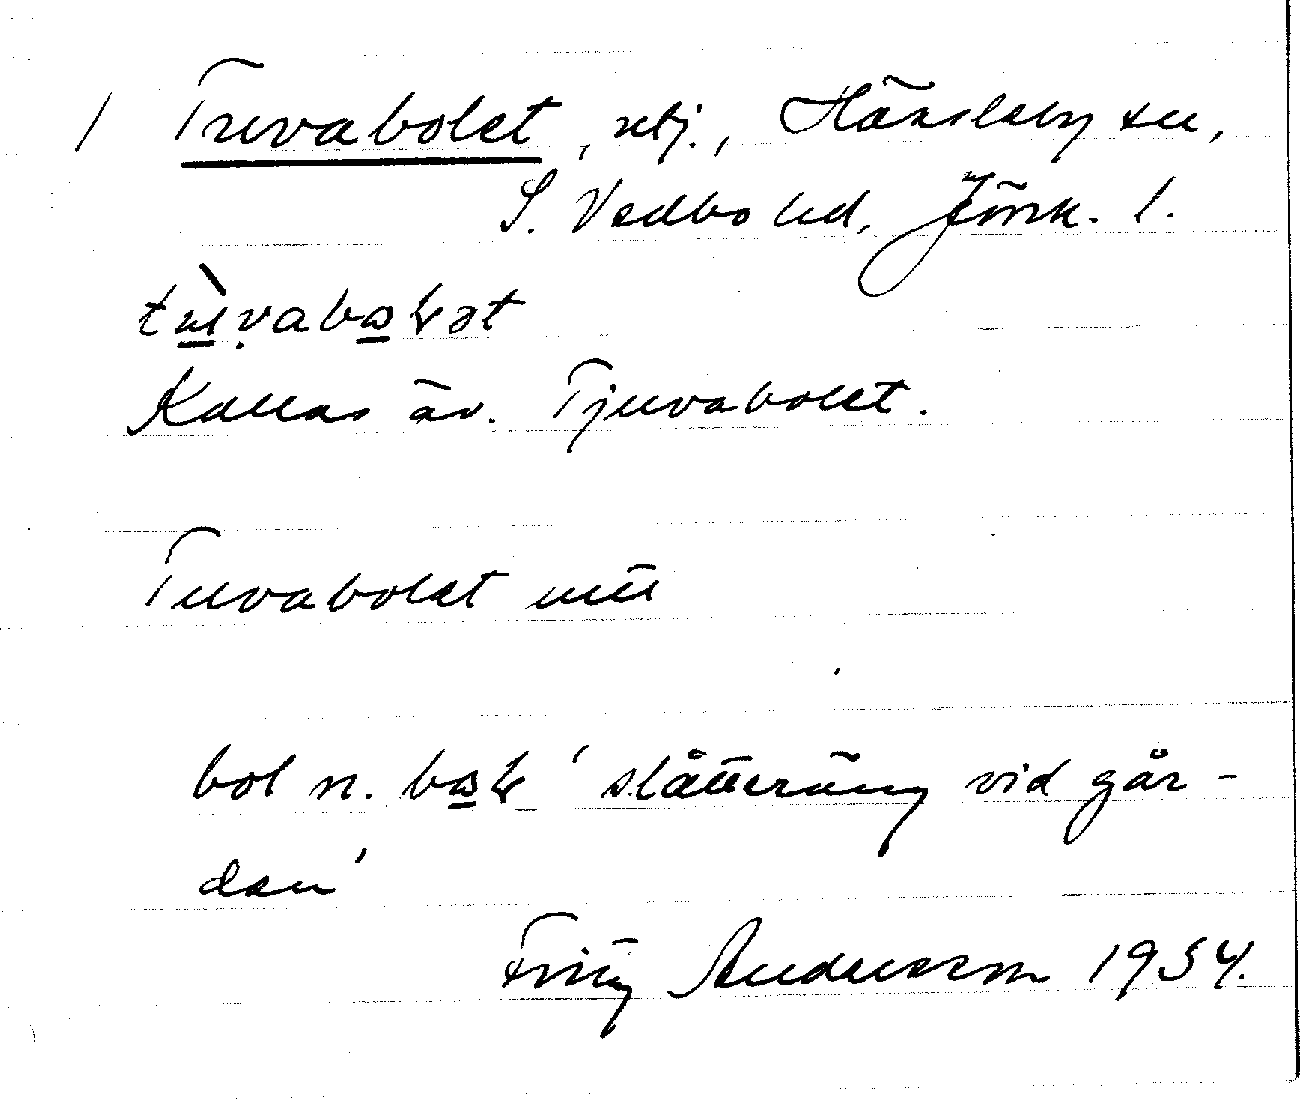 1 Tuvabolet, ubj., Hässleby sn,
S. Vedbo hd, Jönk. l.
Kallas äv. Tjuvabolet.
Tuvabolet
bol n. 'slåtteräng vid går-
den'
Fritz Andersson 1934.